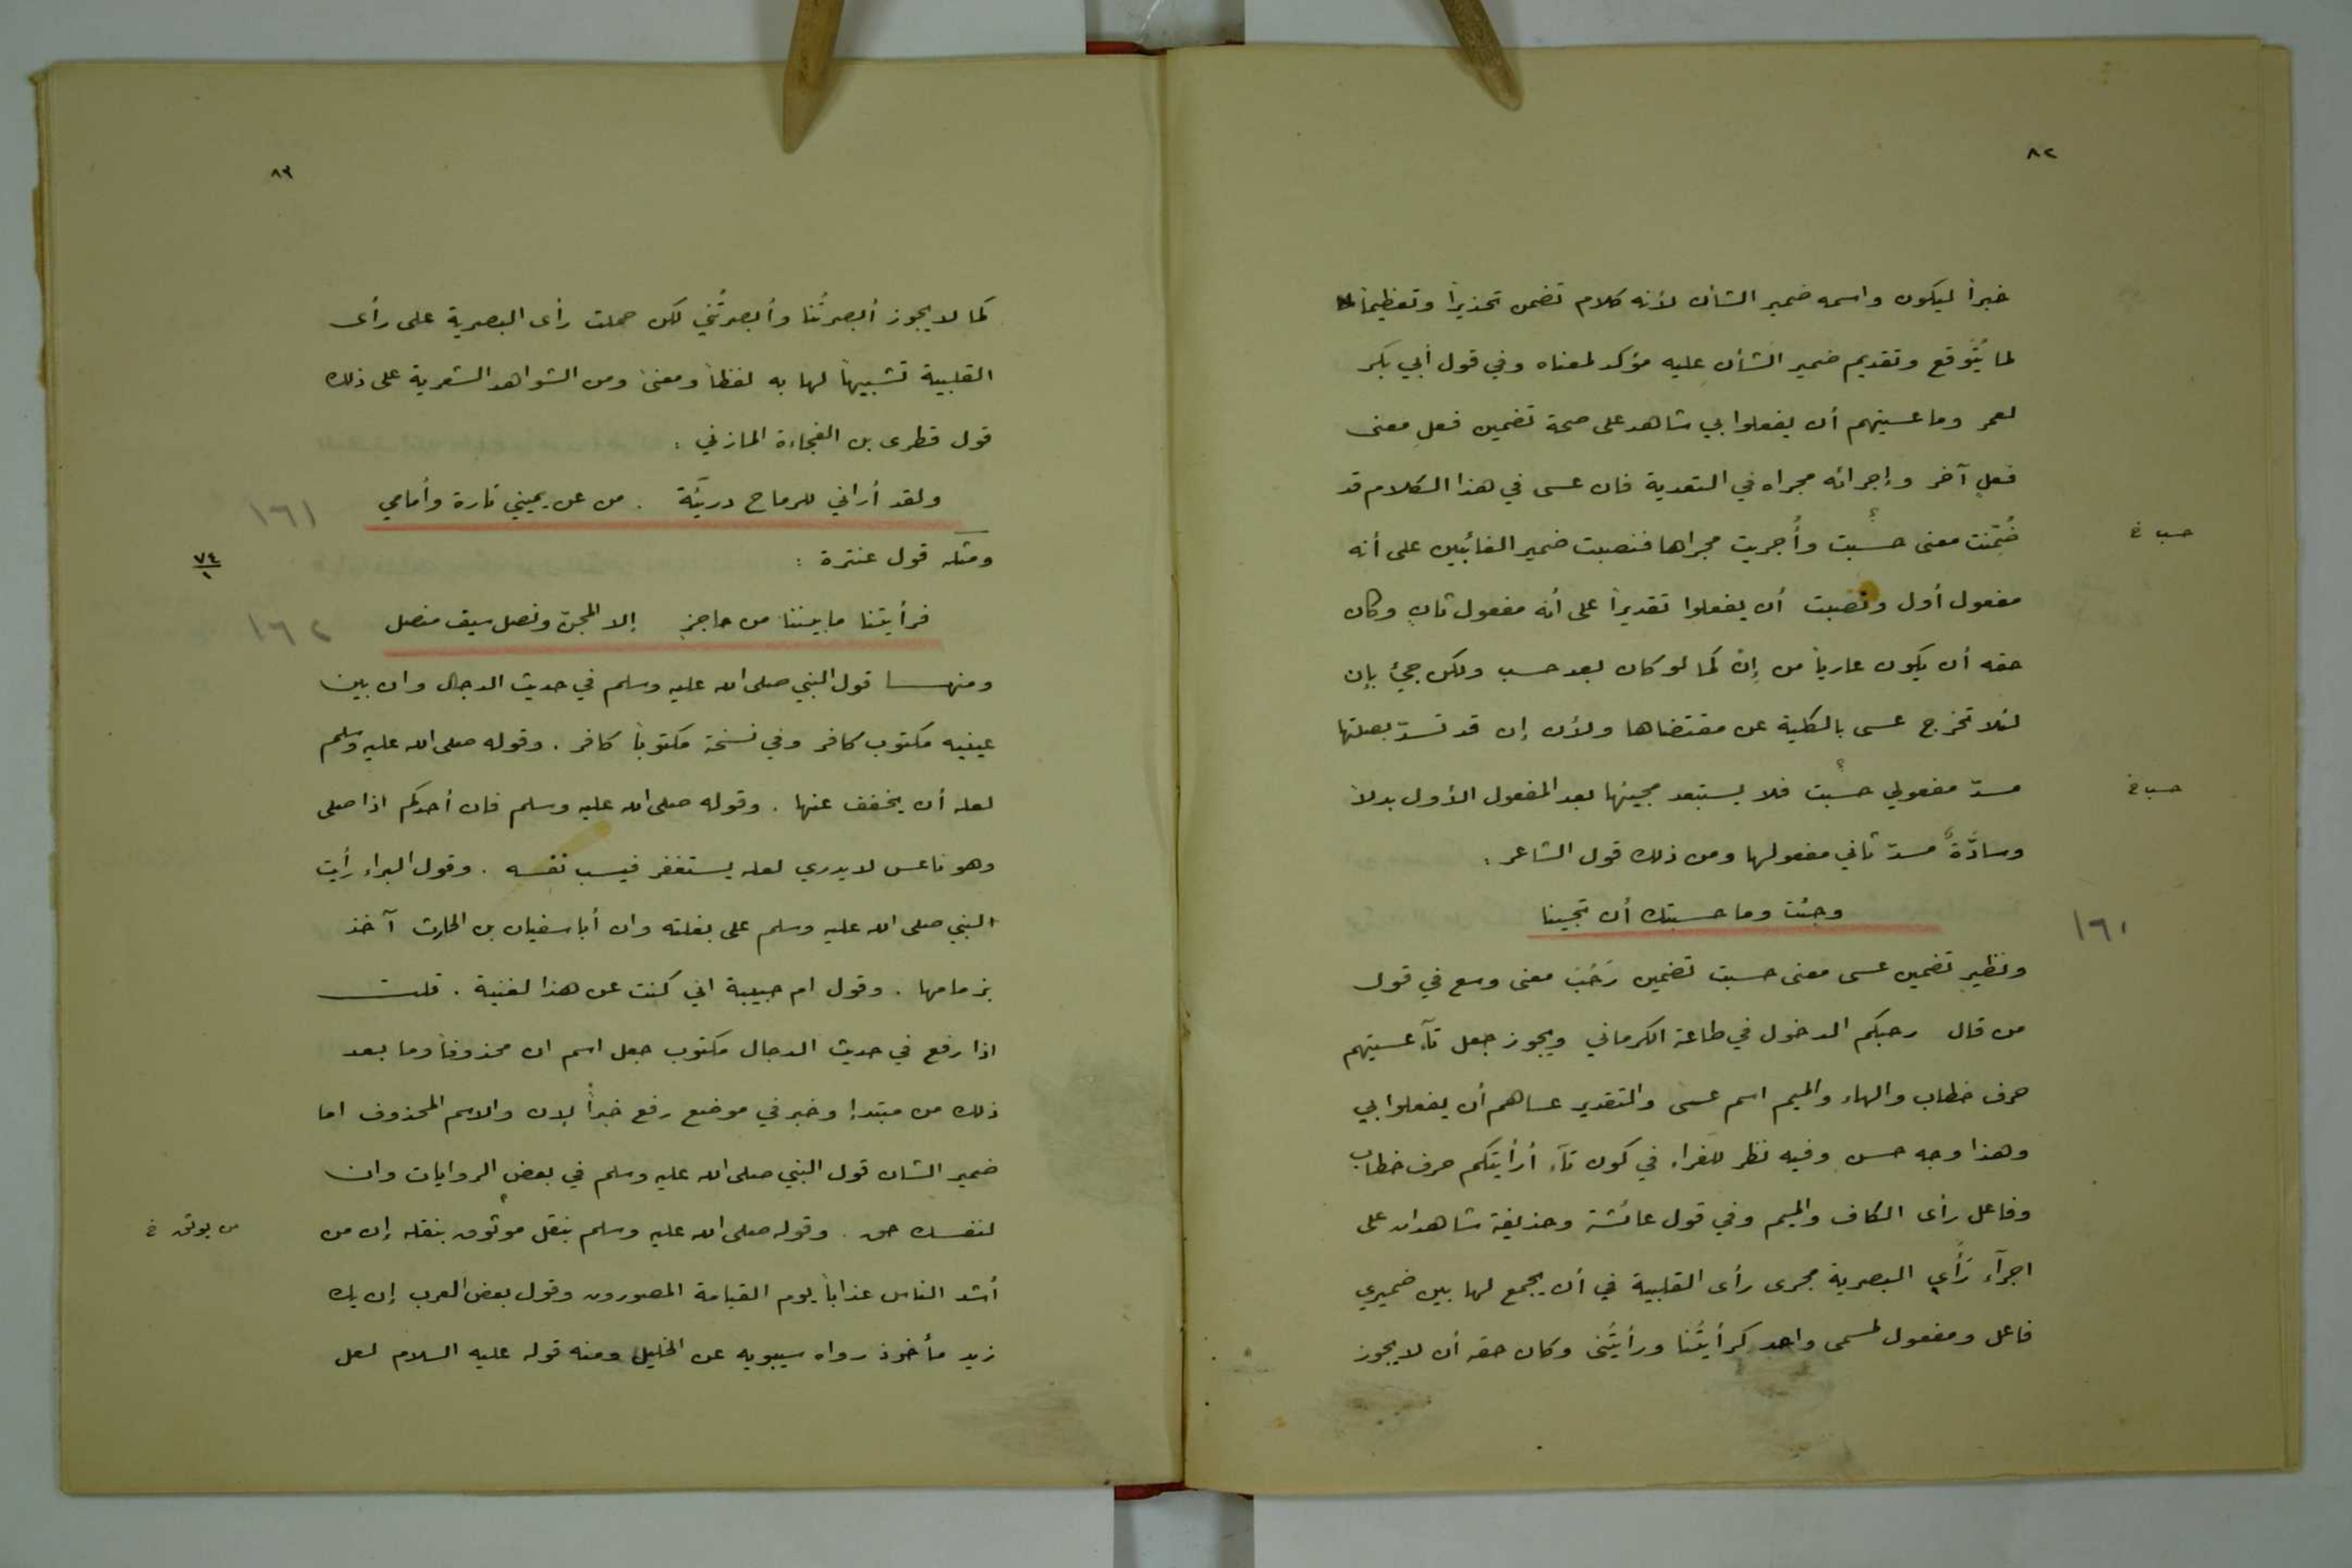 ٨٢
خبراً ليكون واسمه ضمير الشأن لأنه كلام تضمن تحذيراً وتعظيماً
لما يُتَوقع وتقديم ضمير الشأن عليه مؤكد لمعناه وفي قول أبي بكر
لعمر وما عسيتهم أن يفعلوا بي شاهد على صحة تضمين فعل معنى
فعل آخر وإجرائه مجراه في التعدية فان عسى في هذا الكلام قد
ضُمِّنت معنى حسبت وأُجريت مجراها فنصبت ضمير الغائبين على أنه
حسب خ
مفعول أول ونصبت أن يفعلوا تقديراً على أنه مفعول ثان وكان
حقه أن يكون عارياً من إن كما لو كان بعد حسب ولكن جيئ بإن
لئلا تخرج عسى بالكلية عن مقتضاها ولأن إن قد تسدّ بصلتها
مسدّ مفعولي حسبت فلا يستبعد مجيئها بعد المفعول الأول بدلاً
حسب خ
وسادَّةً مسدّ ثاني مفعولها ومن ذلك قول الشاعر :
وجئت وما حسبتك أن تجيئا
١٦٠
ونظير تضمين عسى معنى حسبت تضمين رَحُبَ معنى وسع في قول
من قال رحبكم الدخول في طاعة الكرماني ويجوز جعل تآء عسيتهم
حرف خطاب والهاء والميم اسم عسى والتقدير عساهم أن يفعلوا بي
وهذا وجه حسن وفيه نظر للفراء في كون تآء أرأيتكم حرف خطاب
وفاعل رأى الكاف والميم وفي قول عائشة وحذيفة شاهدان على
اجرآء رَأَي البصرية مجرى رأى القلبية في أن يجمع لها بين ضميري
فاعل ومفعول لمسمى واحد كرأيتُنا ورأيتُنى وكان حقه أن لا يجوز
٨٣
كما لا يجوز أبصرتُنا وأبصرتُني لكن حملت رأى البصرية على رأى
القلبية تشبيهاً لها به لفظاً ومعنى ومن الشواهد الشعرية على ذلك
قول قطرى بن الفجاءة المازني :
ولقد أراني للرماح دريَّة . من عن يميني تارة وأمامي
١٦١
ومثله قول عنترة :
٧٤
١
فرأيتنا ما بيننا من حاجز إلا المجنّ ونصل سيف منصل
١٦٢
ومنها قول النبي صلى الله عليه وسلم في حديث الدجال وان بين
عينيه مكتوب كافر وفي نسخة مكتوباً كافر . وقوله صلى الله عليه وسلم
لعله أن يخفف عنها . وقوله صلى الله عليه وسلم فان أحدكم اذا صلى
وهو ناعس لا يدري لعله يستغفر فيسب نفسه . وقول البراء رأيت
النبي صلى الله عليه وسلم على بغلته وان أبا سفيان بن الحارث آخذ
بزمامها . وقول ام حبيبة اني كنت عن هذا لغنية . قلت
اذا رفع في حديث الدجال مكتوب جعل اسم ان محذوفاً وما بعد
ذلك من مبتدإ وخبر في موضع رفع خبراً لإن والاسم المحذوف اما
ضمير الشان قول النبي صلى الله عليه وسلم في بعض الروايات وان
لنفسك حق . وقوله صلى الله عليه وسلم بنقل موثوق بنقله إن من
من يوثق خ
أشد الناس عذاباً يوم القيامة المصورون وقول بعض العرب إن بك
زيد مأخوذ رواه سيبويه عن الخليل ومنه قوله عليه السلام لعل